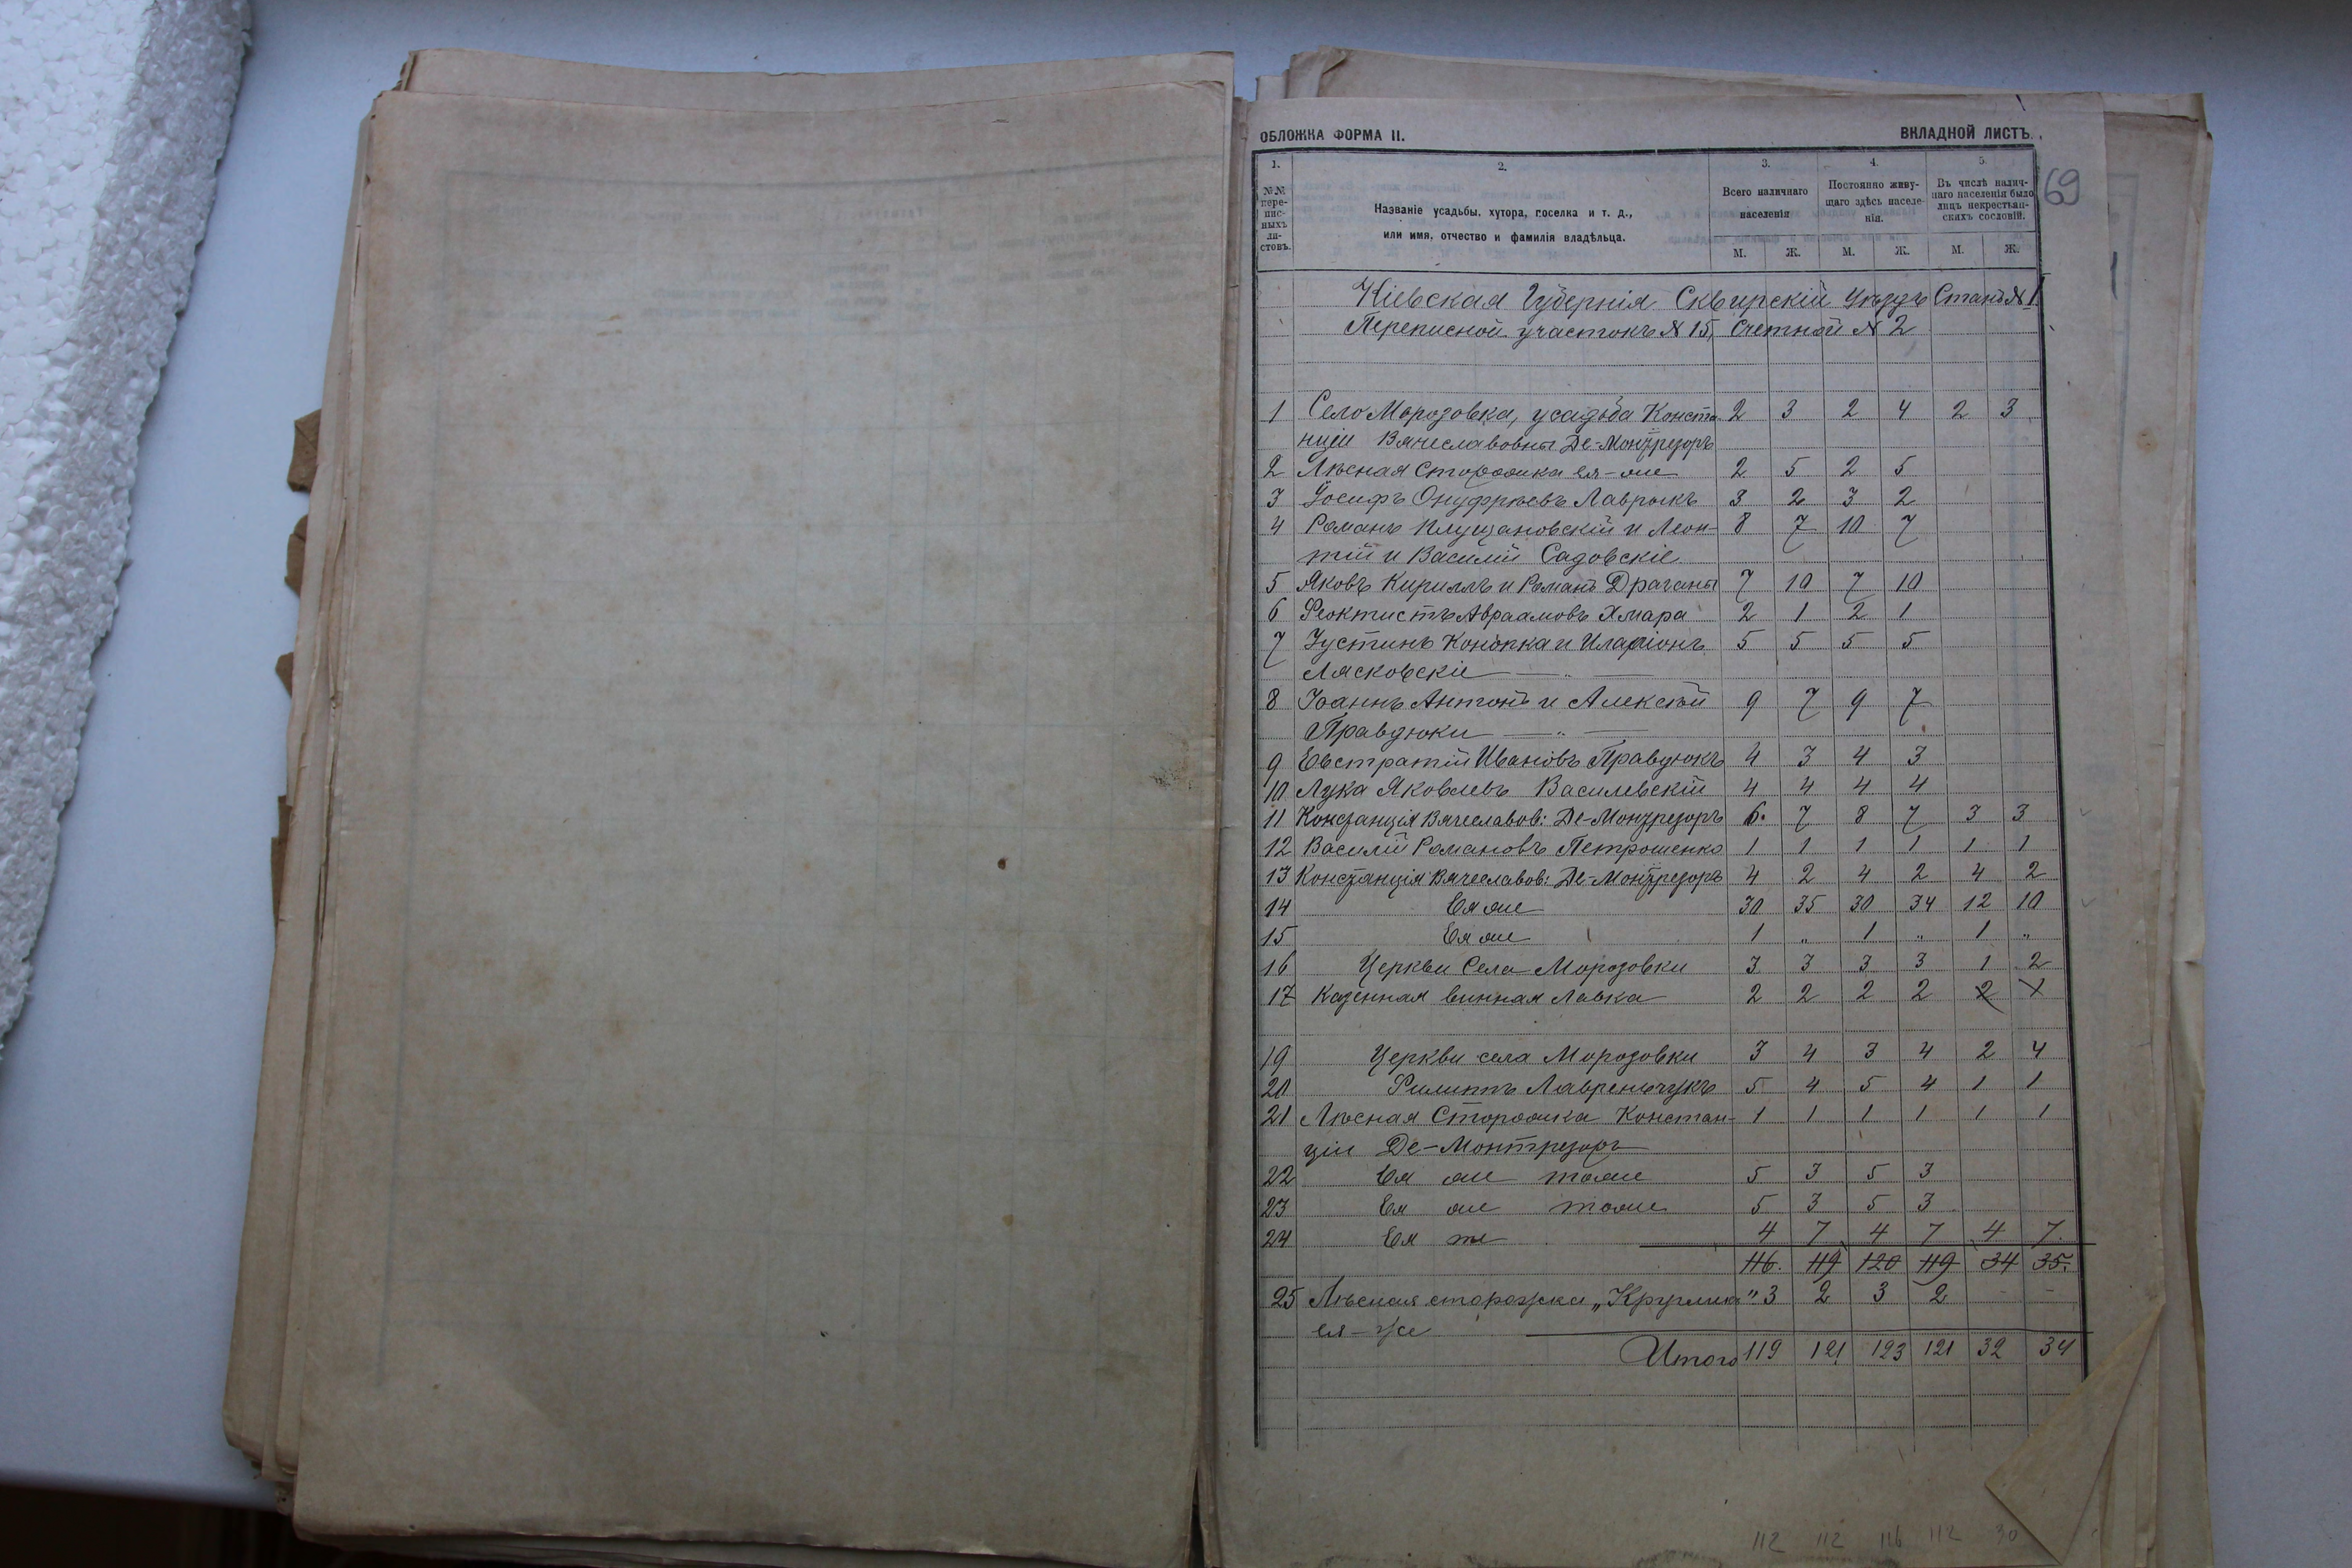 ОБЛОЖКА ФОРМА II. ВКЛАДНОЙ ЛИСТЪ.
69
1. 2. 3. 4. 5.
№№ переписныхъ листовъ.
Названіе усадьбы, хутора, поселка и т. д.,
или имя, отчество и фамилія владѣльца.
Всего наличнаго
населенія
Постоянно живу-
щаго здѣсь населе-
нія.
Въ числѣ налич-
наго населенія было
лицъ некрестьян-
скихъ сословій.
М. Ж. М. Ж. М. Ж.
Кіевская Губернія Сквирскій Уѣздъ Станъ № 1
Переписной участокъ № 15, Счетной № 2
1 Село Морозовка, усадьба Конста 2 3 2 4 2 3
нціи Вячеславовны Де-Монтрезоръ
2 Лѣсная Сторожка ея-же 2 5 2 5
3 Іосифъ Онуфріевъ Лаврыкъ 3 2 3 2
4 Романъ и Леон- 8 7 10 7
тій и Василій Садовскіе
5 Яковъ Кириллъ и Романъ Драганы 7 10 7 10
6 Феоктистъ Авраамовъ Хмара 2 1 2 1
7 Іустинъ Конопка и Иларіонъ 5 5 5 5
Лясковскіе — „ —
8 Іоаннъ Антонъ и Алексѣй 9 7 9 7
Правдюки — „ —
9 Евстратій Ивановъ Правдюкъ 4 3 4 3
10 Лука Яковлевъ Василевскій 4 4 4 4
11 Констанція Вячеславов: Де-Монтрезоръ 6. 7 8 7 3 3
12 Василій Романовъ Петрошенко 1 1 1 1 1 1
13 Констанція Вячеславов: Де-Монтрезоръ 4 2 4 2 4 2
14 Ея же 30 35 30 34 12 10
15 Ея же 1 „ 1 „ 1 „
16 Церкви Села Морозовки 3 3 3 3 1 2
17 Казенная винная Лавка 2 2 2 2 2
19 Церкви села Морозовки 3 4 3 4 2 4
20 Филиппъ Лавренчукъ 5 4 5 4 1 1
21 Лѣсная Сторожка Констан- 1 1 1 1 1 1
ціи Де-Монтрезоръ
22 Ея же тоже 5 3 5 3
23 Ея же тоже 5 3 5 3
24 Ея же 4 7 4 7 4 7.
116. 119 120 119 34 35.
25 Лѣсная сторожка „Круглика" 3 2 3 2 - -
ея-же
Итого 119 121 123 121 32 34
112 112 116 112 30